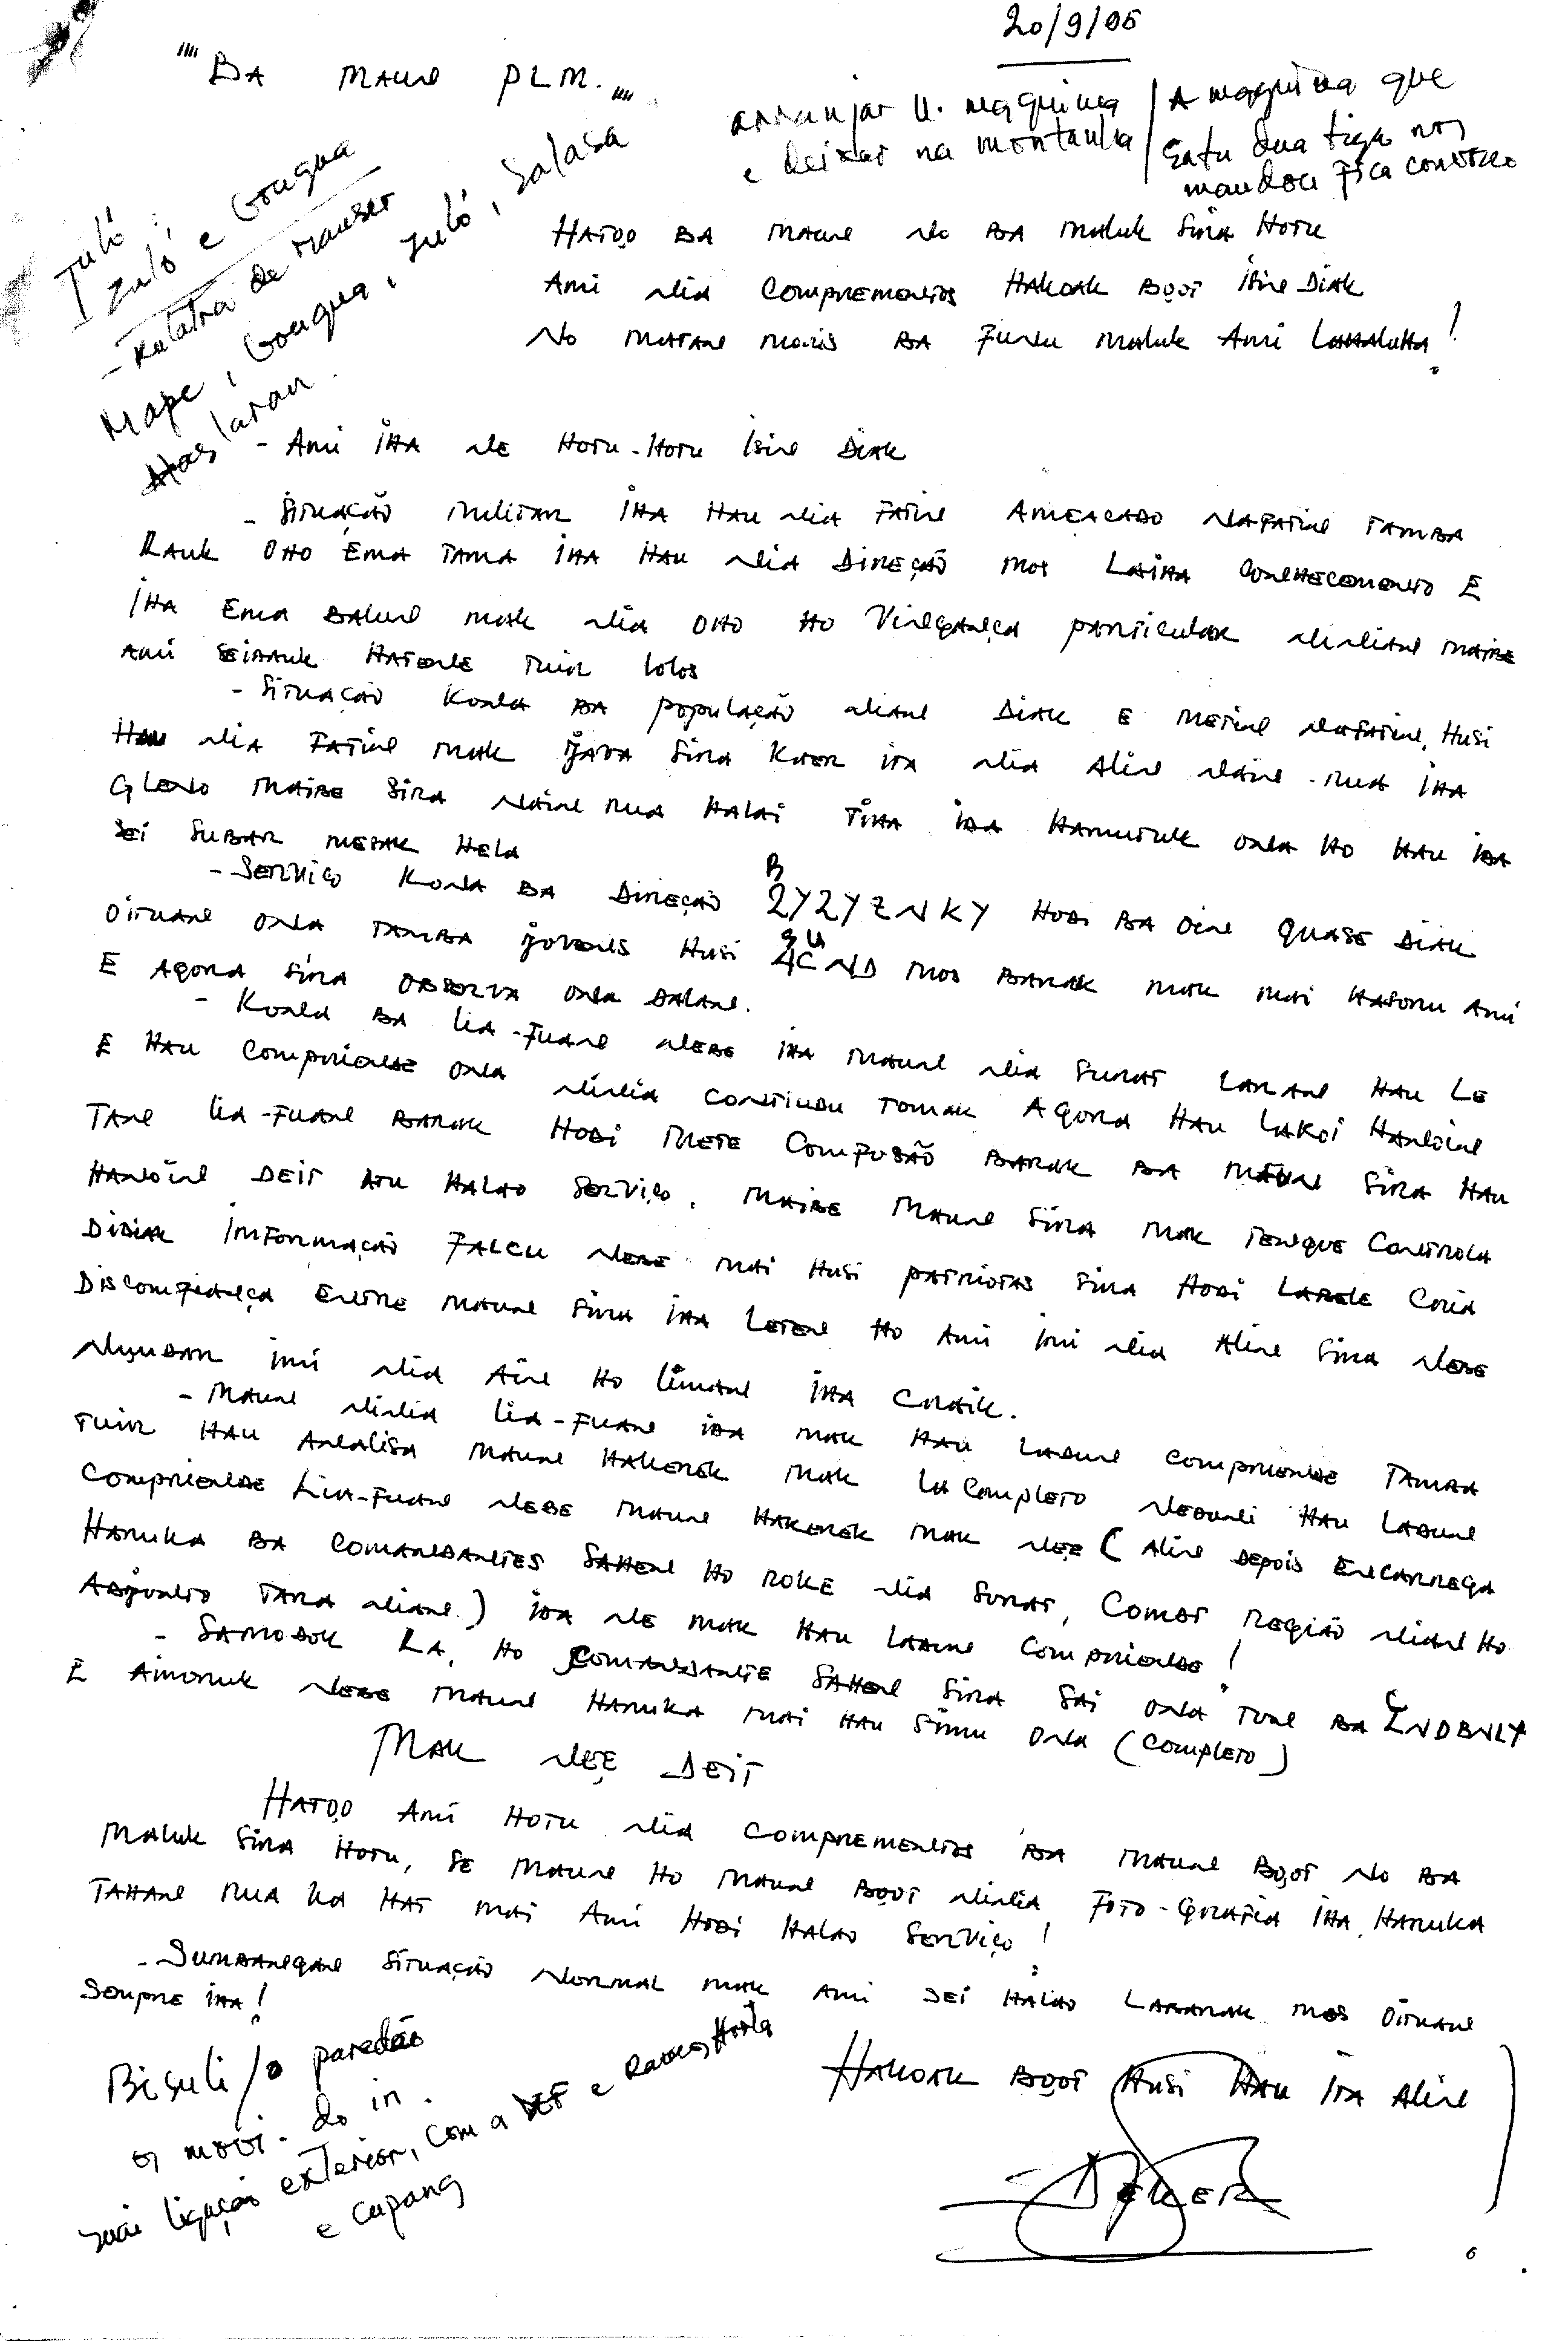 20/9/95
"" BA MAUN PLM. ""
arranjar u. maquina
e deixar na montanha
A maquina que
Satu dua tiga nos
mandou fica connosco
Juló
Juló e Gougua
- Kulatra de Mauser
Mape, Gougua, Juló, Salasa
HATOO BA MAUN NO BA MALUK SIRA HOTU
AMI NIA COMPREMENTOS HAKOAK BOOT ISIN DIAK
NO MATAN MORIS BA FUNU MALUK AMI LAHALUHA!
- AMI IHA NE HOTU-HOTU ISIN DIAK
- SITUAÇÃO MILITAR IHA HAU NIA FATIN AMEAÇADO NAFATIN TAMBA
RAUK OHO EMA TAMA IHA HAU NIA DIREÇÃO MOS LAIHA CONHECEMENTO E
IHA EMA BALUN MAK NIA OHO HO VINGANÇA PARTICULAR NINIAN MAIBE
AMI SEIDAUK HATENE TUIR LOLOS
- SITUAÇÃO KONA BA POPULAÇÃO NIAN DIAK E METIN NAFATIN, HUSI
HAU NIA FATIN MAK JAVA SIRA KAER ITA NIA ALIN NAIN-RUA IHA
GLENO MAIBE SIRA NAIN RUA HALAI TIHA IDA HAMUTUK ONA HO HAU IDA
SEI SUBAR METAK HELA
- SERVIÇO KONA BA DIREÇÃO 2Y2YZNKY HODI BA OIN QUASE DIAK
OITUAN ONA TAMBA JOVENS HUSI 4CND MOS BARAK MAK MAI HASORU AMI
E AGORA SIRA OBSERVA ONA DALAN.
- KONA BA LIA-FUAN NEBE IHA MAUN NIA SURAT LARAN HAU LE
E HAU COMPRIENDE ONA NINIA CONTIUDU TOMAK AGORA HAU LAKOI HANOIN
TAN LIA-FUAN BARAK HODI METE COMFUSÃO BARAK BA MAUN SIRA HAU
HANOIN DEIT ATU HALAO SERVIÇO. MAIBE MAUN SIRA MAK TENQUE CONTROLA
DIDIAK INFORMAÇÃO FALCU NEBE MAI HUSI PATRIOTAS SIRA HODI LABELE CRIA
DISCOMFIANÇA ENTRE MAUN SIRA IHA LETEN HO AMI IMI NIA ALIN SIRA NEBE
NUUDAR IMI NIA AIN HO LIMAN IHA CRAIK.
- MAUN NINIA LIA-FUAN IDA MAK HAU LADUN COMPRIENDE TAMBA
TUIR HAU ANALISA MAUN HAKEREK MAK LA COMPLETO NEDUNI HAU LADUN
COMPRIENDE LIA-FUAN NEBE MAUN HAKEREK MAK NEE (ALIN DEPOIS ENCARREGA
HARUKA BA COMANDANTES SAHEN HO ROKE NIA SURAT, COMOT REGIÃO NIAN HO
ADJUNTO TARA NIAN) IDA NE MAK HAU LADUN COMPRIENDE!
- SAMODOK RA, HO COMANDANTE SAHEN SIRA SAI ONA TUN BA ZNDBNLY
E AIMORUK NEBE MAUN HARUKA MAI HAU SIMU ONA (COMPLETO)
MAK NEE DEIT
HATOO AMI HOTU NIA COMPREMENTOS BA MAUN BOOT NO BA
MALUK SIRA HOTU, SE MAUN HO MAUN BOOT NINIA FOTO-GRAFIA IHA, HARUKA
TAHAN RUA KA HAT MAI AMI HODI HALAO SERVIÇO!
- SUMBANGAN SITUAÇÃO NORMAL MAK AMI SEI HALAO LABARAK MOS OITUAN
SEMPRE IHA!
HAKOAK BOOT HUSI HAU ITA ALIN
DEKER
Bisuli/o paredão
os movi. do in.
mai ligação exterior, com a e Ramos Horta
e Cupang
6